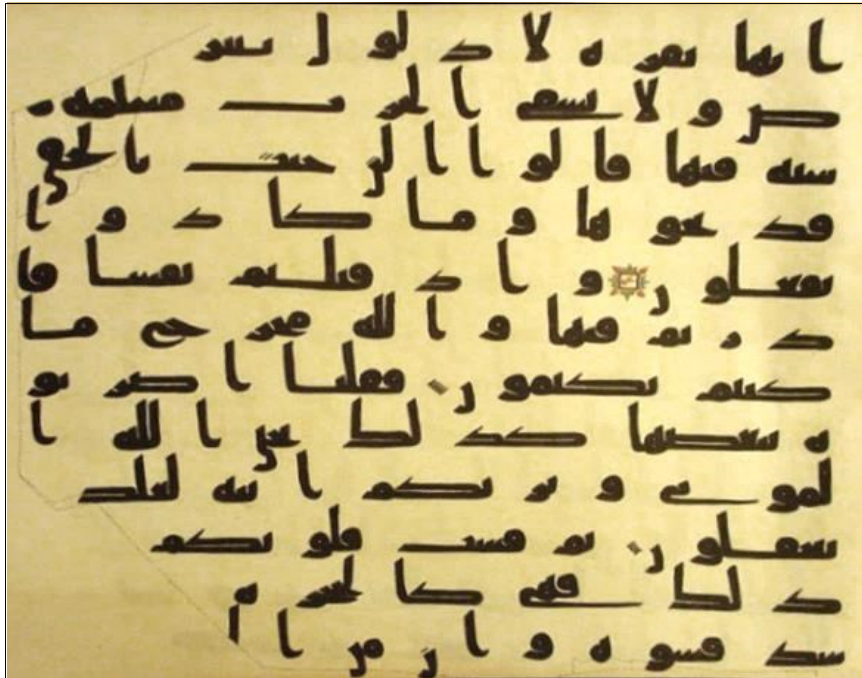 انها بقره لا ذلول تثير
ض ولا تسقي الحرث مسلمه
شيه فيها قالوا الن جيت بالحق
فذبحوها وما كادوا
يفعلون واذ قتلتم نفسا فا
درتم فيها والله مخرج ما
كنتم تكتمون فقلنا اضربو
ه ببعضها كذلك يحي الله ا
لموتي ويريكم ايته لعلكم
تعقلون ثم قست قلوبكم
ذلك فهي كالحجره
شد قسوه وان من ا